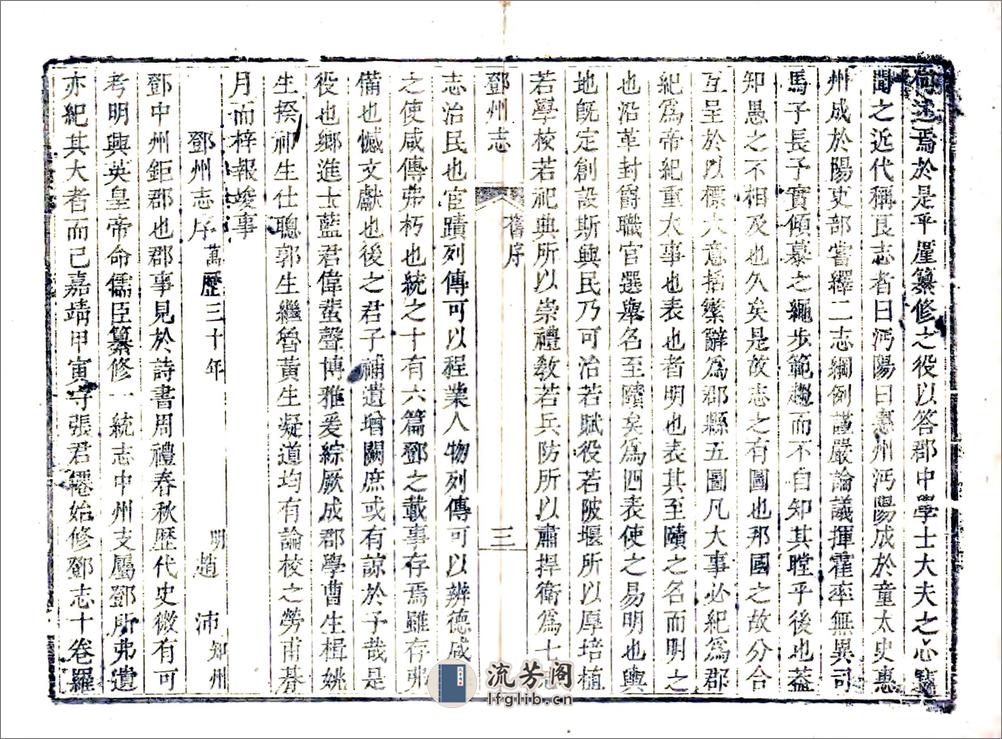 述焉於是平厓纂修之役以答郡中學士大夫之心竊
聞之近代稱良志者曰沔陽曰惠州沔陽成於童太史惠
州成於陽史部嘗繹二志綱例謹嚴論議揮霍率無異司
馬子長予實傾慕之繩步範趨而不自知其瞠乎後也葢
知愚之不相及也久矣是故志之有圖也那國之故分合
互呈於以標大意括縏辭爲郡縣五圖凡大事必紀爲郡
紀爲帝紀重大事也表也者明也表其至賾之名而明之
也沿革封爵職官選舉名至賾矣爲四表使之易明也輿
地旣定創設斯興民乃可治若賦役若陂堰所以厚培植
若學校若祀典所以崇禮敎若兵防所以肅捍衛爲七
鄧州志
舊序
三
志治民也官蹟列傳可以程業人物列傳可以辨德咸
之使咸傳弗朽也統之十有六篇鄧之載事存焉雖存弗
備也憾文獻也後之君子補遺增闕庶或有諒於予哉是
役也鄉進士藍君偉蜚聲博雅爰綜厥成郡學曹生楫姚
生揆祁生仕聰郭生繼魯黃生凝道均有論校之勞甫朞
月而梓報竣事
鄧州志序 萬歷三十年 明 趙沛 知州
鄧中州鉅郡也郡事見於詩書周禮春秋歷代史微有可
考明興英皇帝命儒臣纂修一統志中州支屬鄧所弗遺
亦紀其大者而已嘉靖甲寅守張君僊始修鄧志十卷羅
流芳阁
lfglib.cn